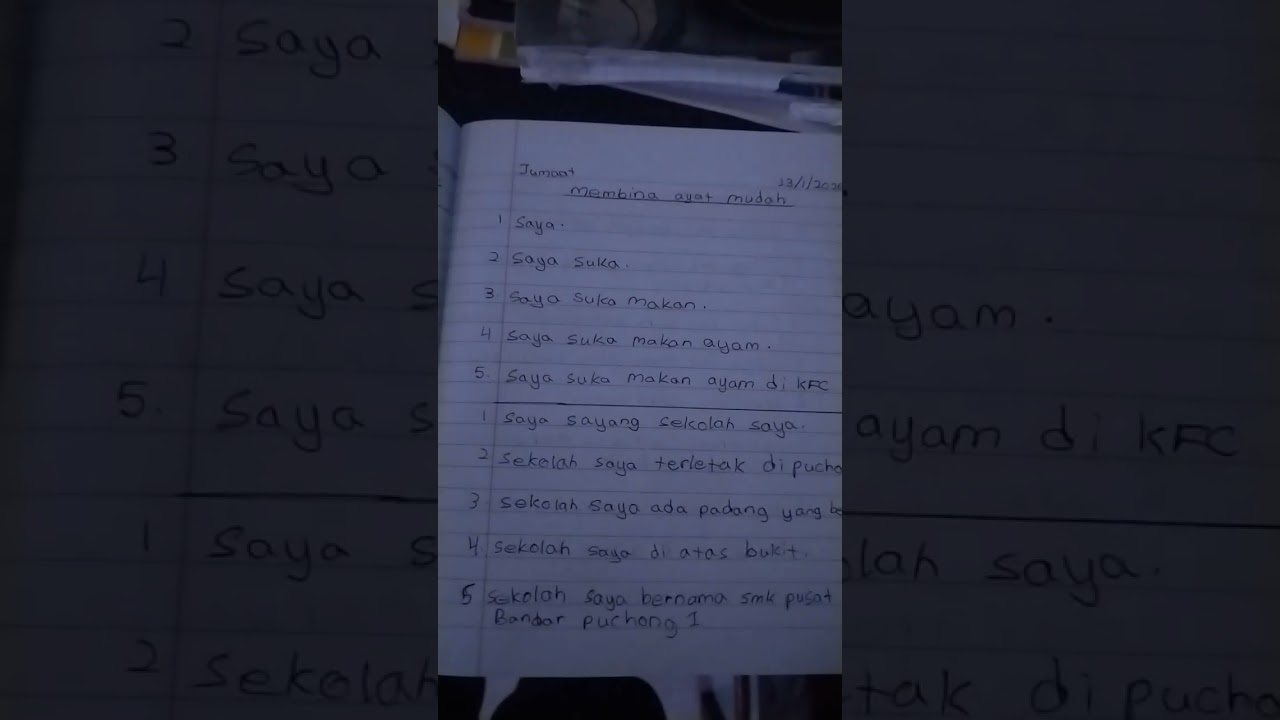 Jumaat
membina ayat mudah
1 Saya.
2 Saya suka.
3 Saya suka makan.
4 Saya suka makan ayam.
5. Saya suka makan ayam di KFC
1 Saya sayang sekolah saya.
2 Sekolah saya terletak di pucho
3 Sekolah saya ada padang yang
4 Sekolah saya di atas bukit.
5 Sekolah saya bernama smk pusat
Bandar puchong 1